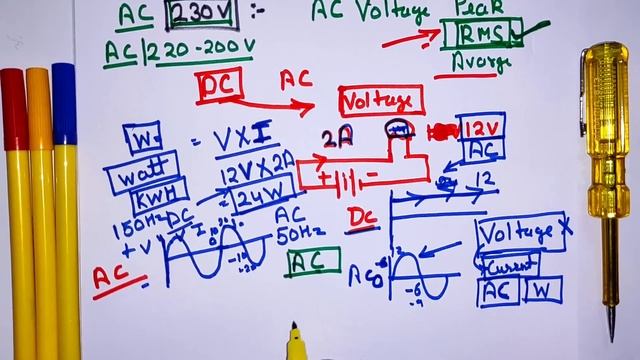 AC 230V :-
AC Voltage Peak
AC/220-200V
RMS
Avarge
DC AC
Voltage
W. = VXI
2A
12V
AC
watt
12V X 2A
+ -
KWH
= 24W
12
150Hz DC
AC
50Hz
DC
Voltage X
+V
AC
AC
AC
Current
AC W
-6
-9